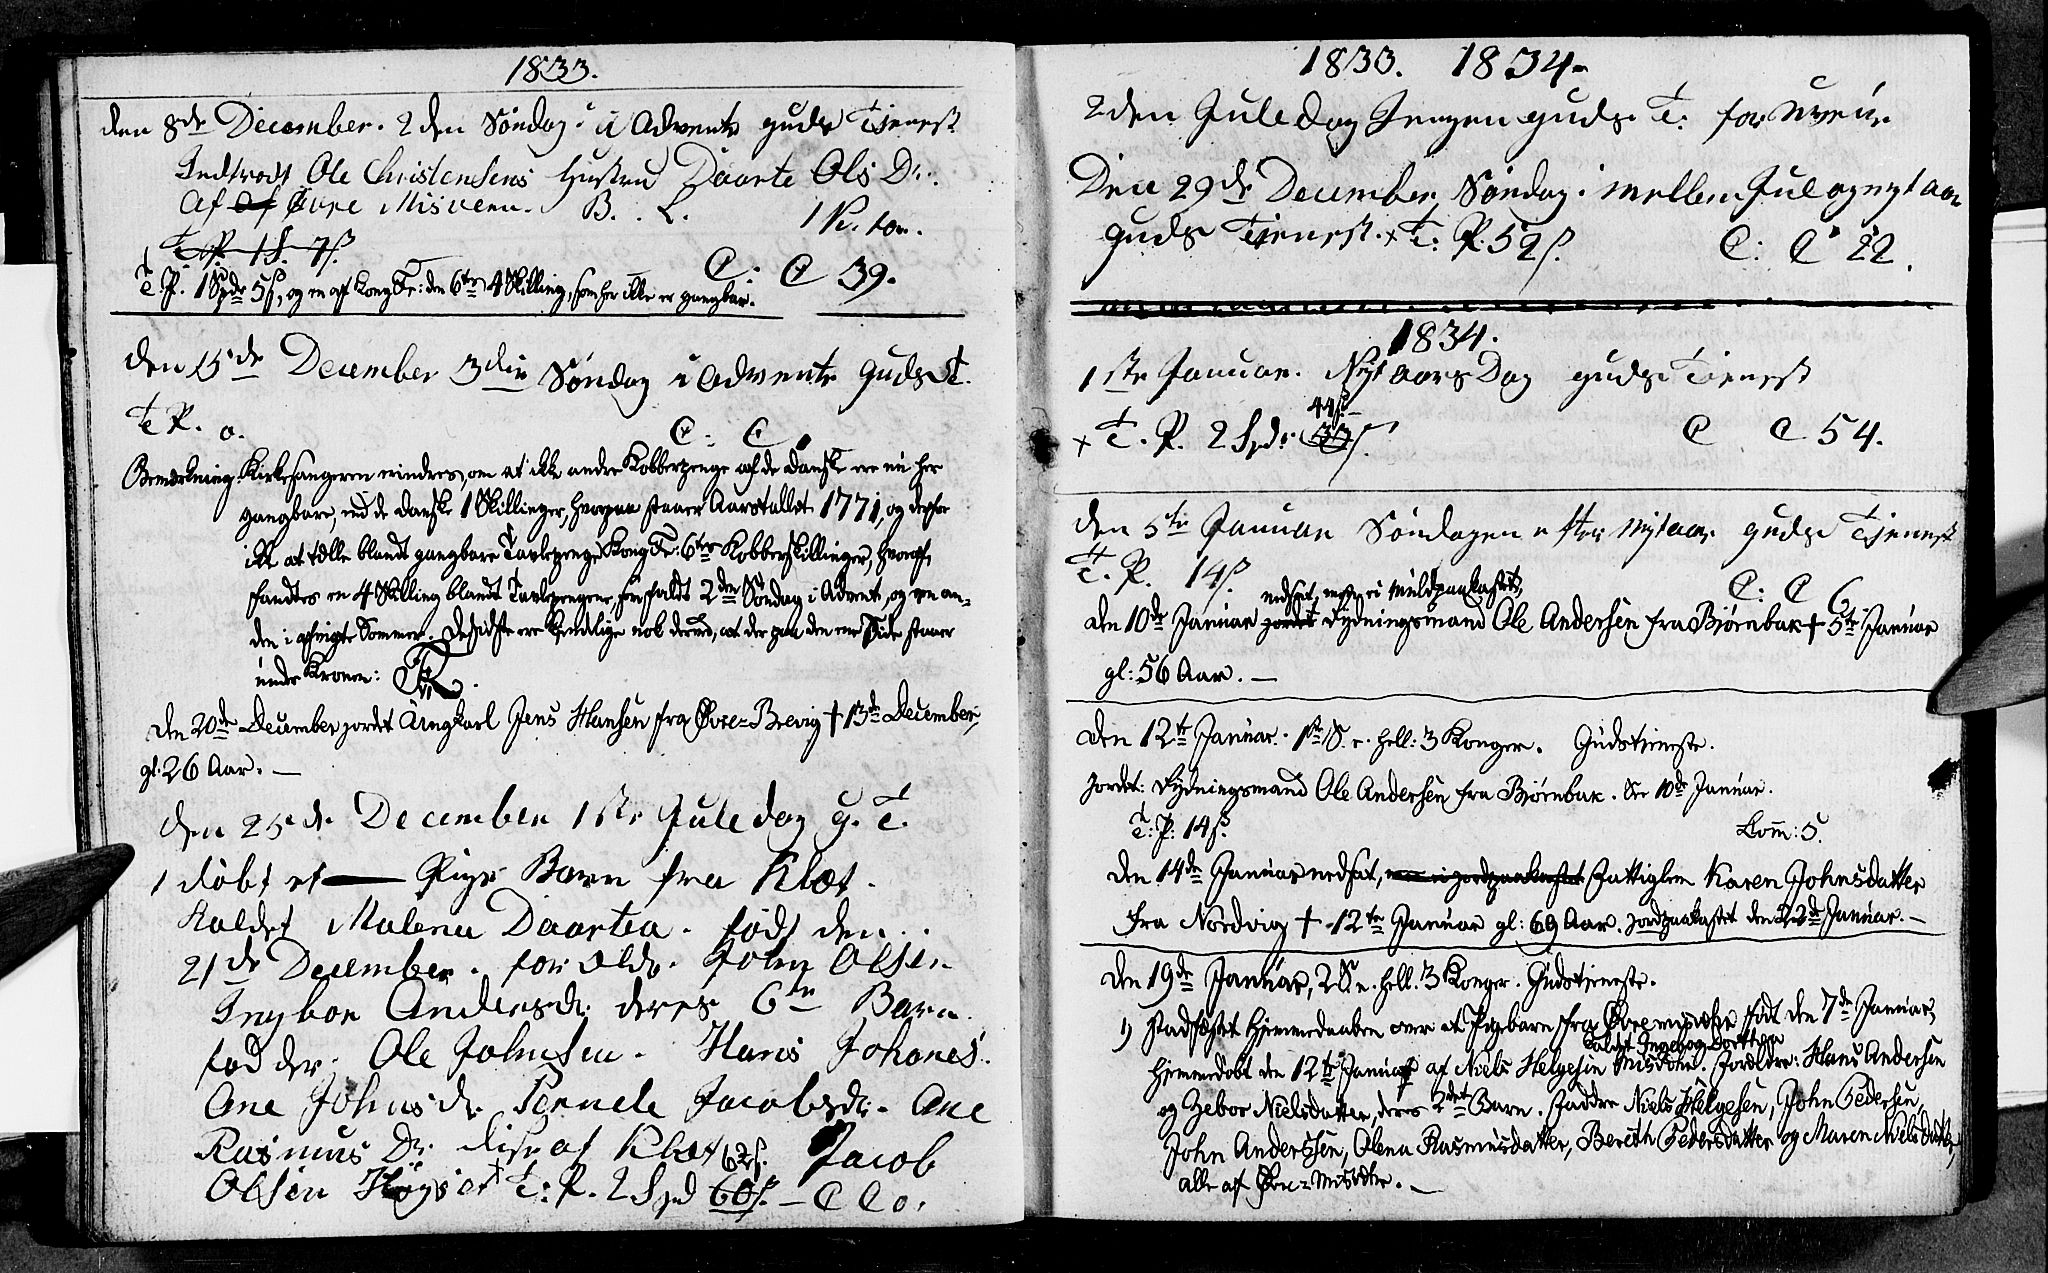 1833.
den 8de December. 2den Søndag i Advente guds Tienest
Indtrodt Ole Christensens Hustru Daarte Ols Dr.
af af Øvre Misvenn. B. L. 1 K. kon.
T. P. 1 S. 7 ß
C: C 39.
T. P. 1 Spdr 5 ß, og en af Kong Fr: den 6te 4 Skilling, som her ikke er gangbar.
den 15de December 3die Søndag i Advente Guds T.
T P. o.
C: C
Bemærkning. Kirkesangeren erindres, om at ikke andre Kobberpenge af de danske ere nu her
gangbare, end de danske 1 Skillinger, hvorpaa staaer Aarstallet 1771, og derfor
ikke at tælle blandt gangbare Tavlepenge Kong Fr: 6tes Kobberskillinger, hvoraf
fandtes en 4 Skilling blandt Tavlepengene, som faldt 2den Søndag i Advent, og een an-
den i afvigte Sommer. De sidste ere kjendelige nok derved, at der paa den ene Side staaer
under Kronen: FR VI.
Den 20de December jordet Ungkarl Jens Hansen fra Øvre-Brevig † 13de December,
gl. 26 Aar. —
den 25de December 1ste Juledag g. T.
1 døbt et — Pige Barn fra Klæt.
kaldet Malena Daartea. født den
21de December. foræld: John Olsen
Ingbor Andersdr. deres 6te Barn.
fadder. Ole Johnsen. Hans Johanes.
Ane Johnsdr. Pernele Jacobsdr. Ane
Rasmus Dr. disse af Klæt 62 ß. Jacob
Olsen Høgset T: P. 2 Spd 60 ß. — C C o.
1833. 1834.
2den Juledag Ingen guds T: for Uveir
Den 29de December, Søndag imellem Jul og nyt aar
guds Tienest. × T: P. 52 ß. C: C 22.
1834.
1ste Januar. Nyt aars Dag guds Tienest
44 ß
× T. P. 2 Spdr. 33 ß. C C 54.
den 5te Januar Søndagen efter nytaar guds Tienest
T. P. 14 ß C: C 6
nedsat, men ei muldpaakastet,
den 10de Januar jordet Rydningsmand Ole Andersen fra Bjørnbak † 5te Januar
gl: 56 Aar. —
den 12te Januar. 1ste S. e. hell: 3 Konger. Gudstieneste.
Jordet: Rydningsmand Ole Andersen fra Bjørnbak. See 10de Januar.
T: P: 14 ß. Com̅: 5.
den 14de Januar nedsat, men ei jordpaakastet Fattiglem Karen Johnsdatter
fra Nordvig † 12te Januar gl: 69 Aar. jordpaakastet den 22de Januar. —
den 19de Januar, 2 S. e. hell. 3 Konger. Gudstieneste.
1) Stadfæstet Hjemmedaaben over et Pigebarn fra Øvre Misvær født den 7de Januar,
kaldet Ingebog Dorthea
hjemmedøbt den 12te Januar af Niels Helgesen Misvær. Foreldre: Hans Andersen
og Zebor Nielsdatter, deres 2det Barn. Faddre Niels Helgesen, John Pedersen,
John Anderssen, Olena Rasmusdatter, Bereth Pedersdatter og Maren Nielsdatter,
alle af Øvre-Misvær. —